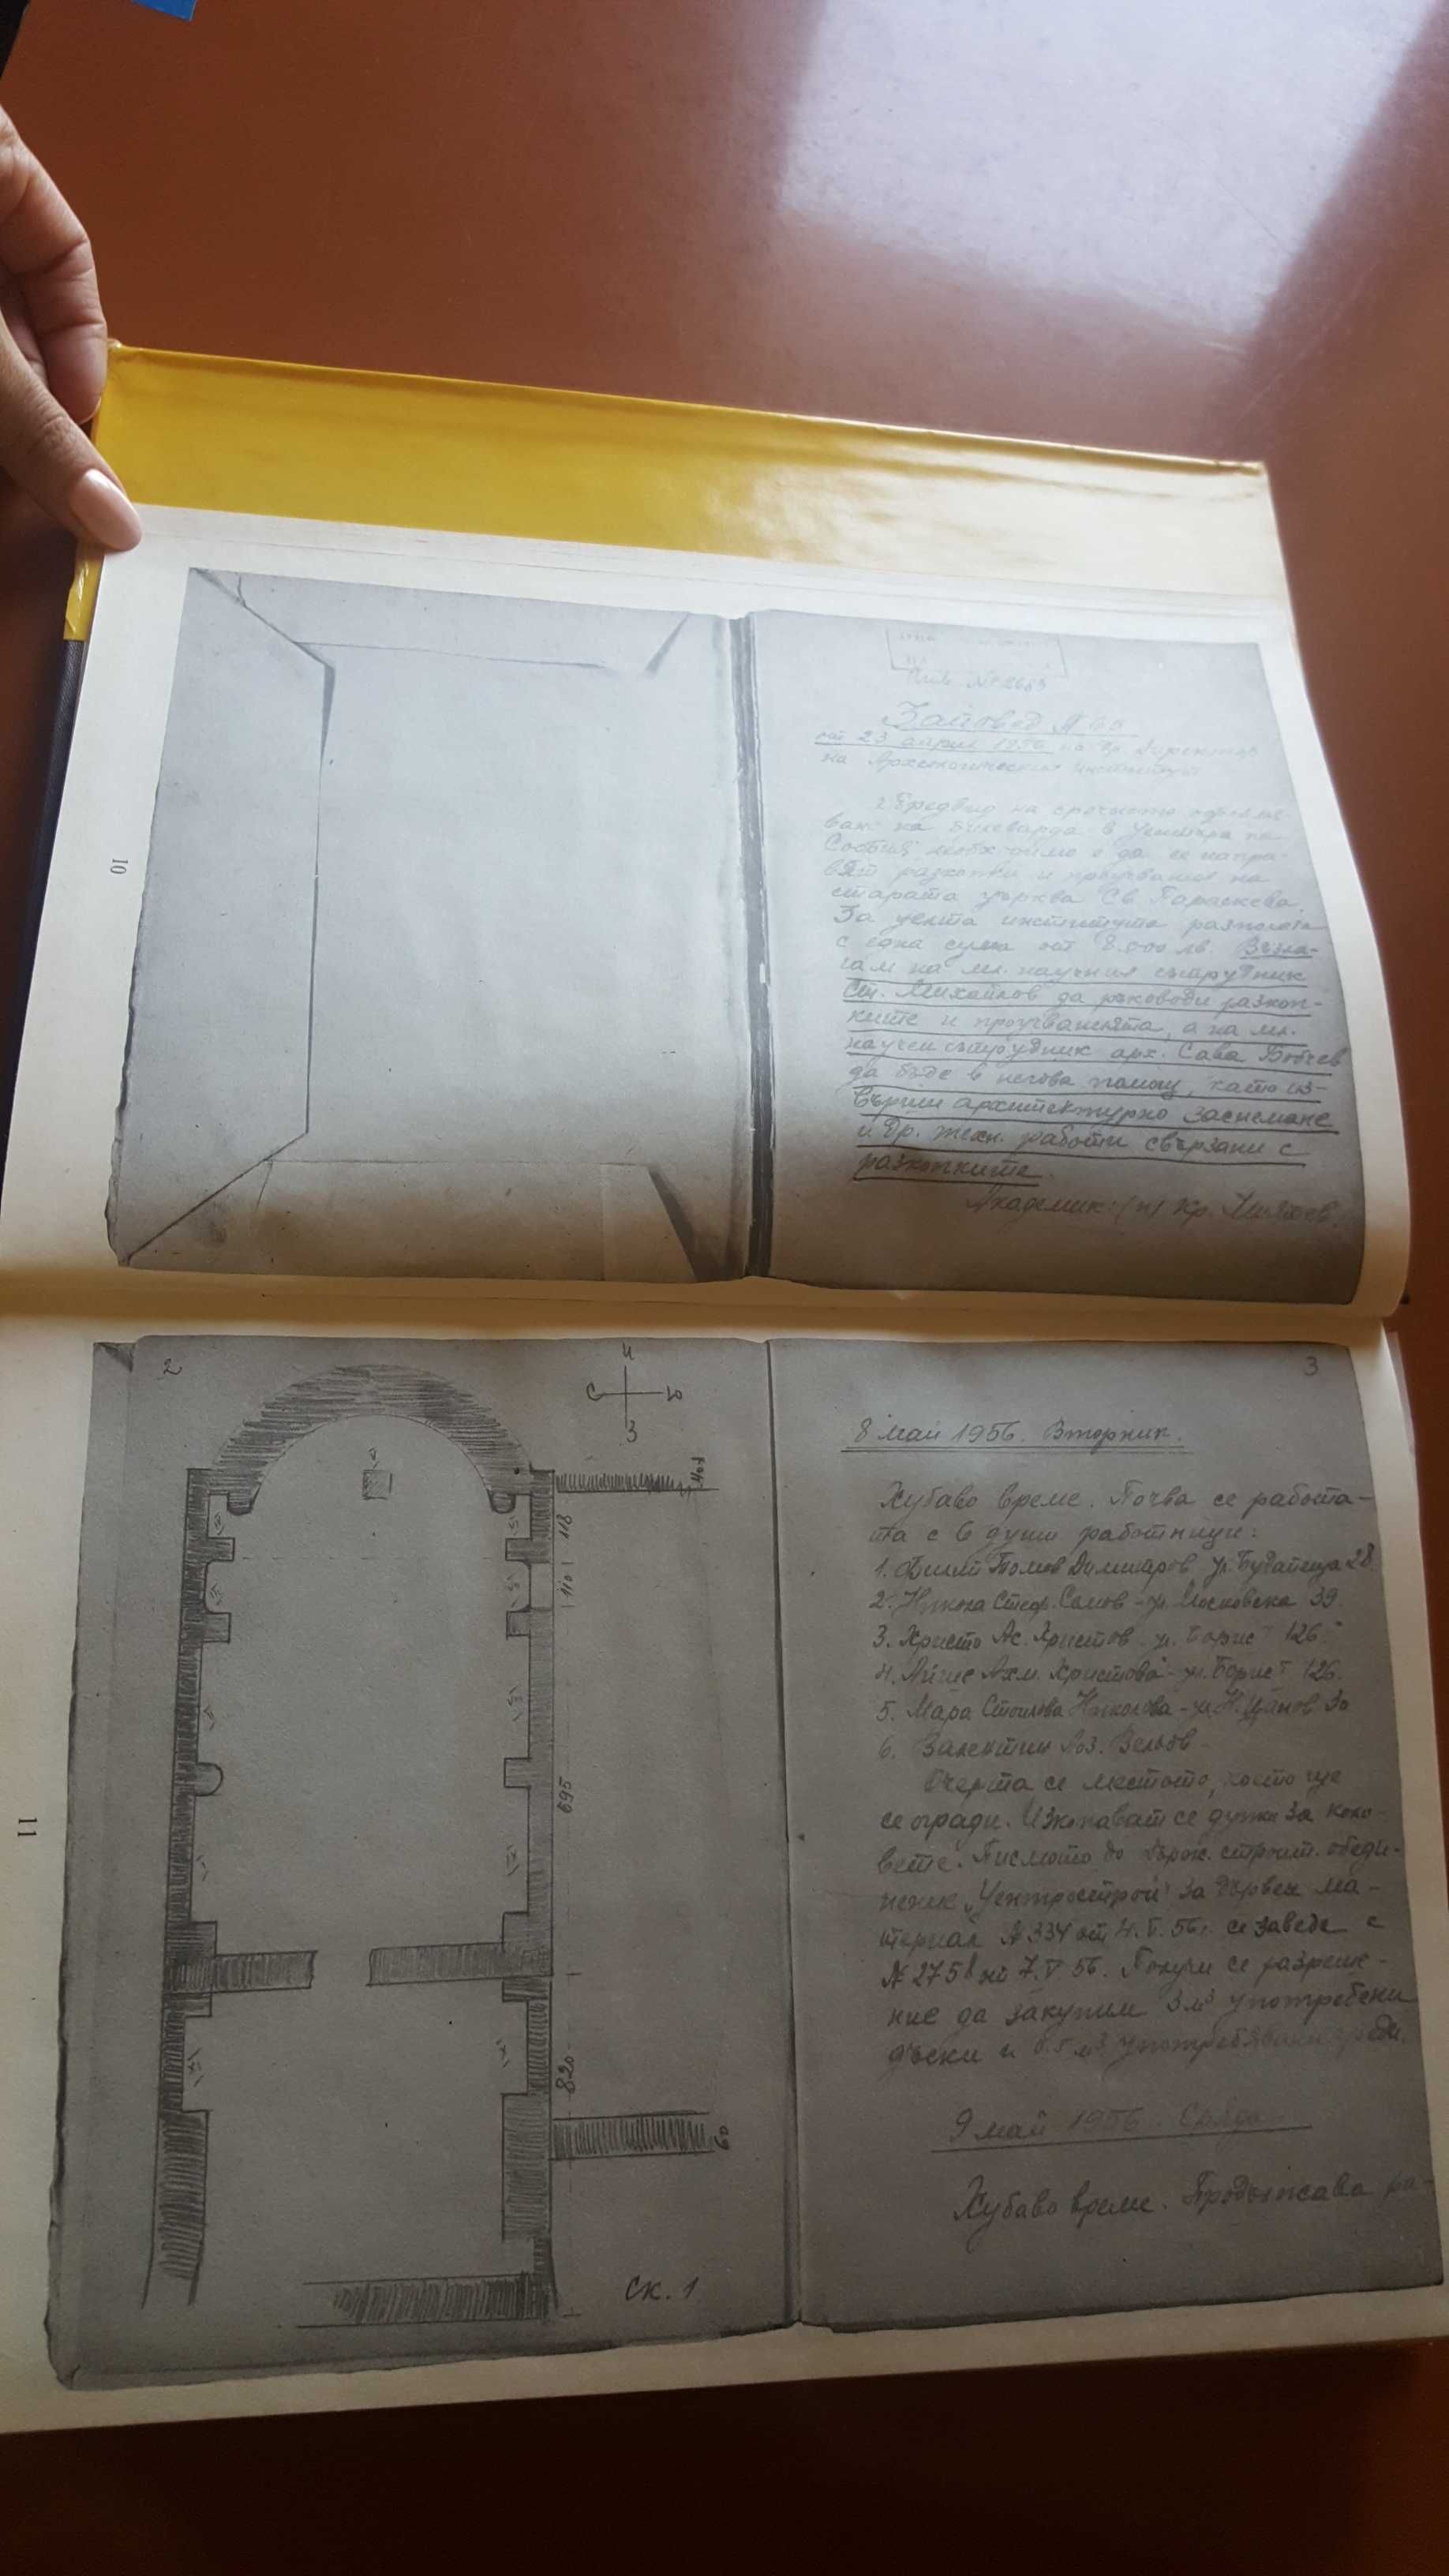 10
Инв. № 2683
Заповед № 60
от 23 април 1956 на Директора
на Археологическия институт
Предвид на срочното
на булеварда в центъра на
София, необходимо е да се напра-
вят разкопки и проучвания на
старата църква Св. Параскева.
За целта института разполага
с една сума от 8.000 лв. Възла-
гам на мл. научния сътрудник
Ст. Михайлов да ръководи разкоп-
ките и проучванията, а на мл.
научен сътрудник арх. Сава Бобчев
да бъде в негова помощ, като из-
върши архитектурно заснемане
и др. техн. работи свързани с
разкопките.
Академик: (п) Кр. Миятев
11
2
И
С
Ю
З
118
110
695
820
60
ск. 1
3
8 май 1956. Вторник.
Хубаво време. Почва се работа-
та с 6 души работници:
1. Томов Димитров ул. Будапеща 28
2. Никола Стеф. Сомов - ул. Московска 39.
3. Христо Ас. Христов - ул. Борис I 126
4. Ахм. Христова - ул. Борис I 126.
5. Мара Стоилова Николова - ул. Н. Цанов 30
6. Валентин Велков
Очерта се местото, което ще
се огради. Изкопават се дупки за коло-
вете. Писмото до Держ. строит. обеди-
нение „Центрострой" за дървен ма-
териал № 334 от 4.V.56 г. се заведе с
№ 2758 от 7.V.56. Получи се разреше-
ние да закупим 3 м³ употребени
дъски и 0.5 м³ употребявани греди.
9 май 1956. Сряда
Хубаво време. Продължава ра-